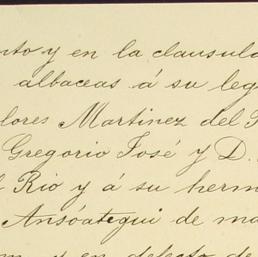 nto y en la clausula
albaceas á su leg
lores Martinez del
Gregorio José y D.
Rio y á su herm
Ansóategui de ma
y en defecto de